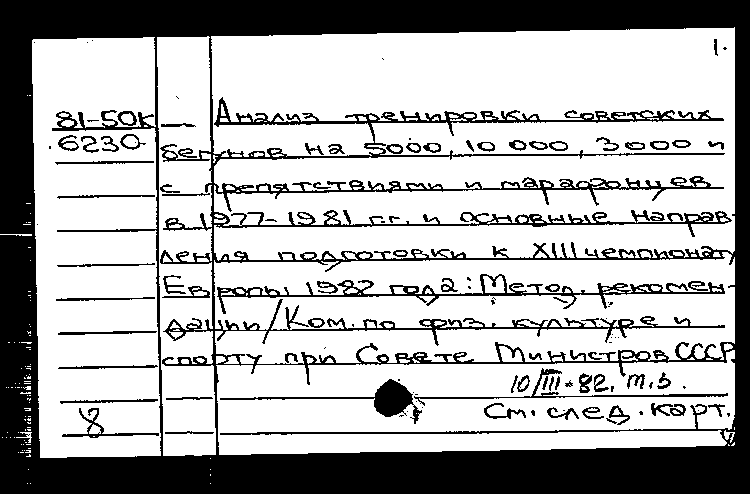 1.
81-50к — Анализ тренировки советских
6230 бегунов на 5000, 10 000, 3000 и
с препятствиями и марафонцев
в 1977-1981 г.г. и основные направ-
ления подготовки к XIII чемпионату
Европы 1982 года: Метод. рекомен-
дации/Ком. по физ. культуре и
спорту при Совете Министров СССР.
10/III-82. т.з.
8 См. след. карт.